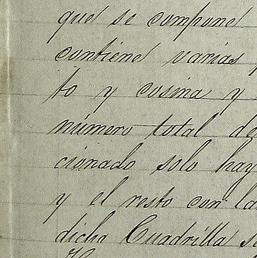 que se compone
contiene varias
to y cosina y
número total de
cionado solo hay
y el resto con la
dicha Cuadrilla se